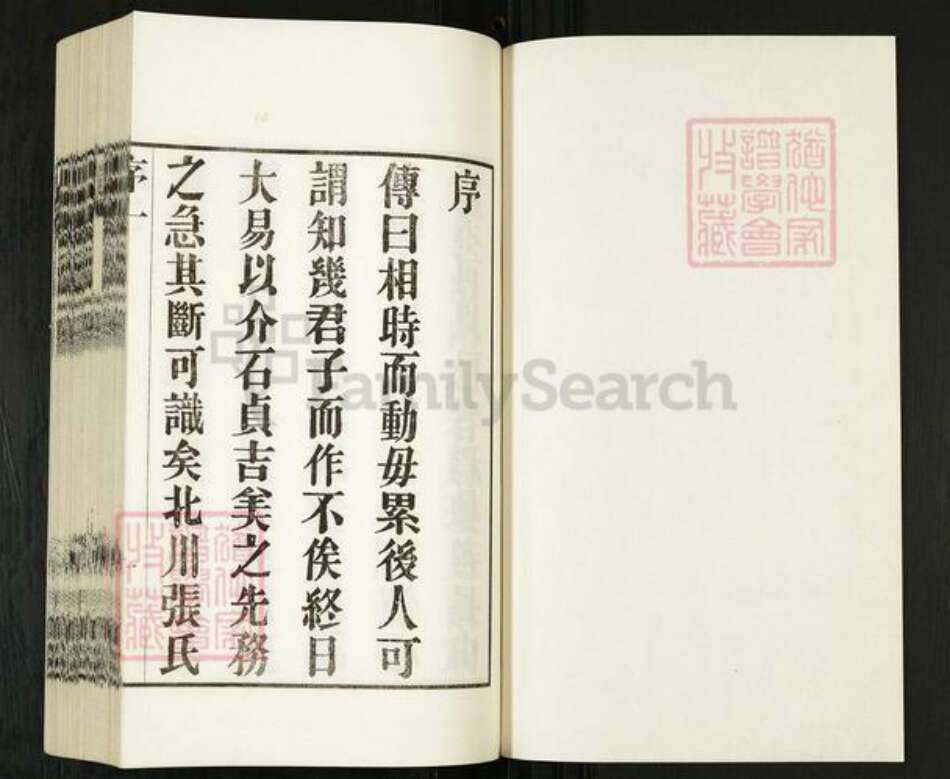 序
傳曰相時而動毋累後人可
謂知幾君子而作不俟終日
大易以介石貞吉矣之先務
之急其斷可識矣北川張氏
序 一
FamilySearch
譜學會
收藏